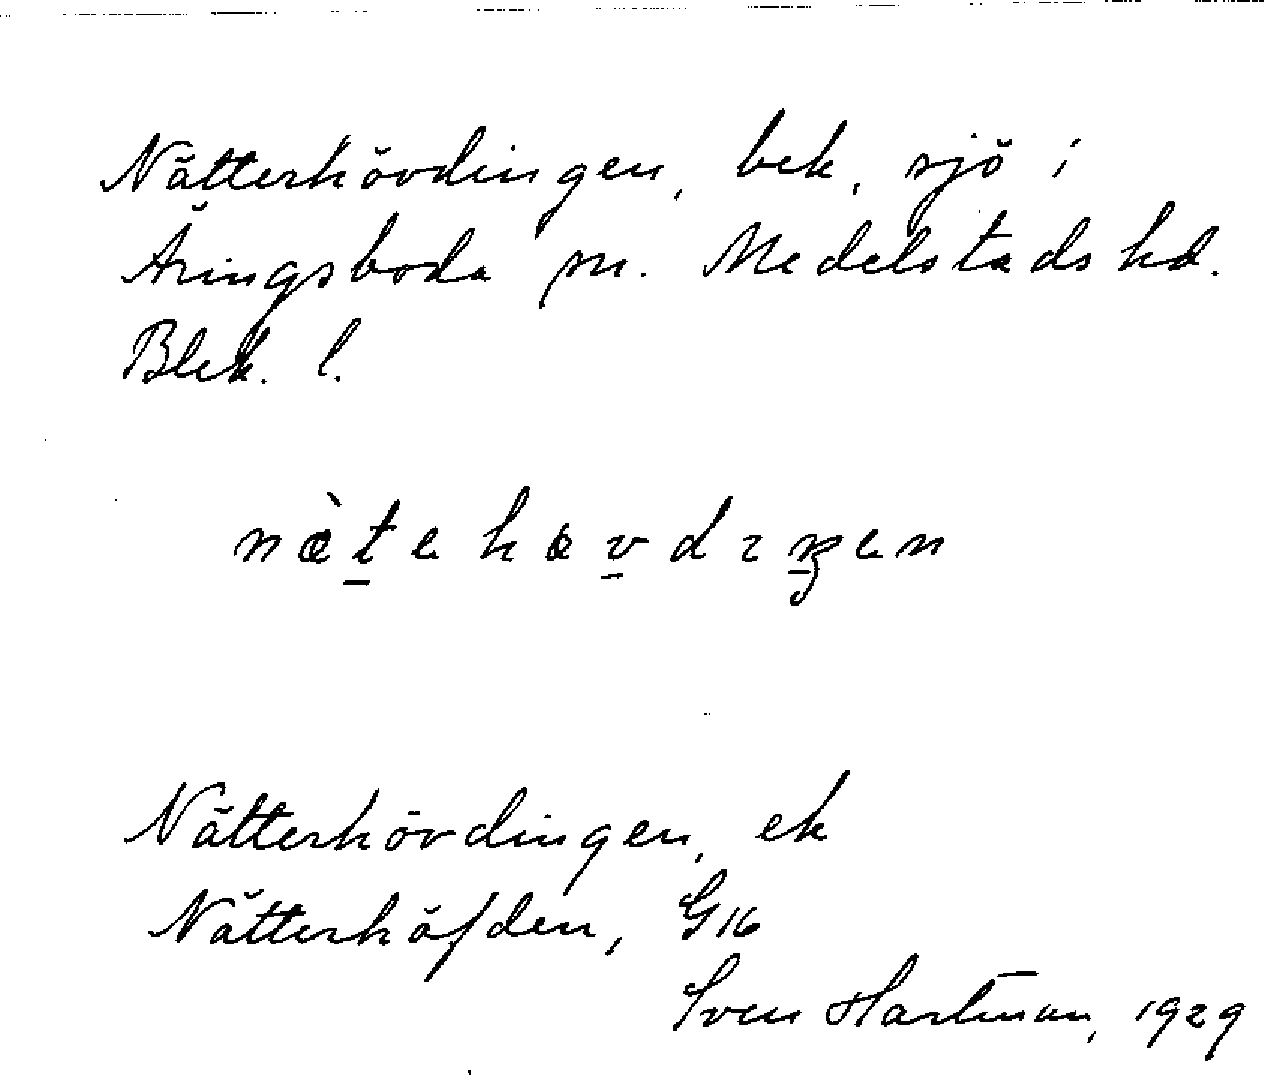 Nätterhövdingen, bek, sjö i
Äringsboda sn. Medelstads hd.
Blek. l.
næ̀tehøvdıŋen
Nätterhövdingen, ek
Nätterhöfden, G16
Sven Hartman, 1929